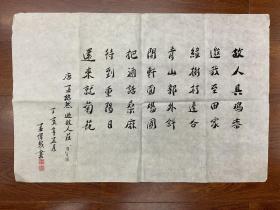 故人具鷄黍
邀我至田家
綠樹村邊合
青山郭外斜
開軒面場圃
把酒話桑麻
待到重陽日
還來就菊花
唐 孟浩然 過故人莊
丁亥年
書